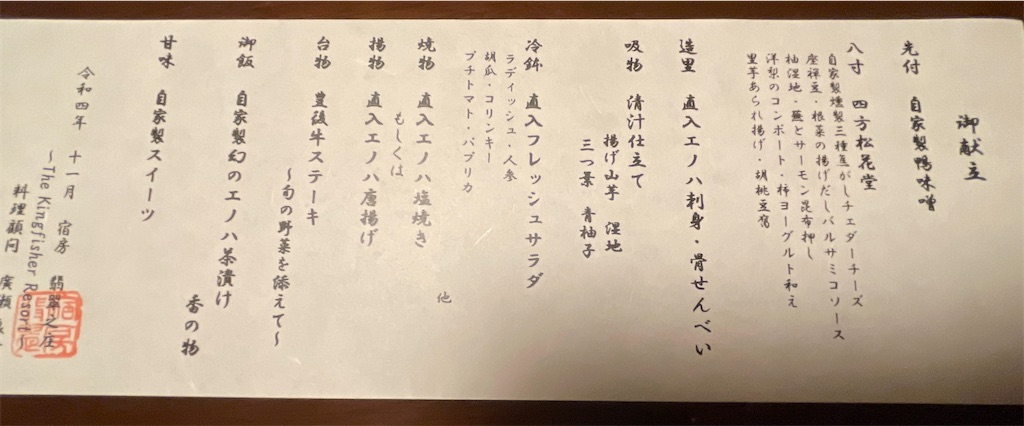 御献立
先付　自家製鴨味噌
八寸　四方松花堂
自家製燻製三種豆がしチェダーチーズ
座禅豆・根菜の揚げだしバルサミコソース
柚湿地・蕪とサーモン昆布押し
洋梨のコンポート・柿ヨーグルト和え
里芋あられ揚げ・胡桃豆腐
造里　直入エノハ刺身・骨せんべい
吸物　清汁仕立て
揚げ山芋　湿地
三つ景　青柚子
冷鉢　直入フレッシュサラダ
ラディッシュ・人参
胡瓜・コリンキー
プチトマト・パプリカ
他
焼物　直入エノハ塩焼き
もしくは
揚物　直入エノハ唐揚げ
台物　豊後牛ステーキ
～旬の野菜を添えて～
御飯　自家製幻のエノハ茶漬け
香の物
甘味　自家製スイーツ
令和四年　十一月　宿房　翡翠之庄
～The Kingfisher Resort～
料理顧問　廣瀬